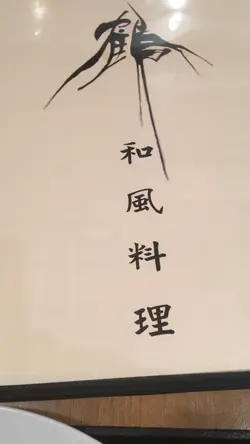 鶴
和風料理